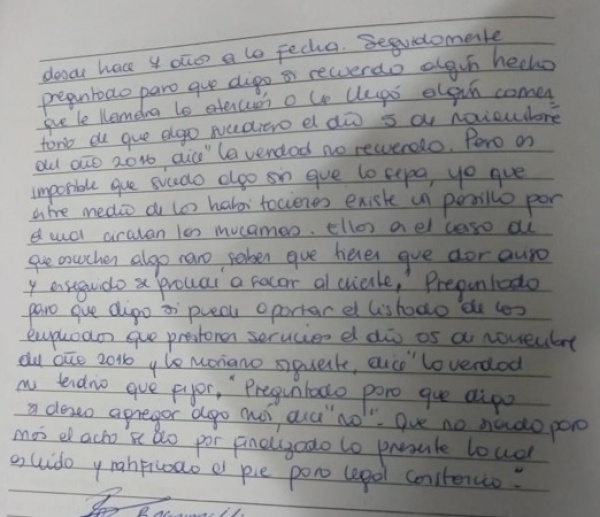 desde hace 4 años a la fecha. Seguidamente
preguntado para que diga si recuerda algún hecho
que le llamara la atención o le llegó algún comen=
tario de que algo sucediera el día 5 de noviembre
del año 2016, dice "la verdad no recuerdo. Pero es
imposible que suceda algo sin que lo sepa, ya que
entre medio de las habitaciones existe un pasillo por
el cual circulan las mucamas. Ellas en el caso de
que escuchen algo raro saben que tienen que dar aviso
y enseguida se procede a sacar al cliente, Preguntado
para que diga si puede aportar el listado de los
empleados que prestaron servicios el día 05 de noviembre
del año 2016 y la mañana siguiente, dice "la verdad
me tendría que fijar," Preguntado para que diga
si desea agregar algo más, dice "no"- Que no siendo para
más el acto se da por finalizado la presente la cual
es leída y ratificada al pie para legal constancia -